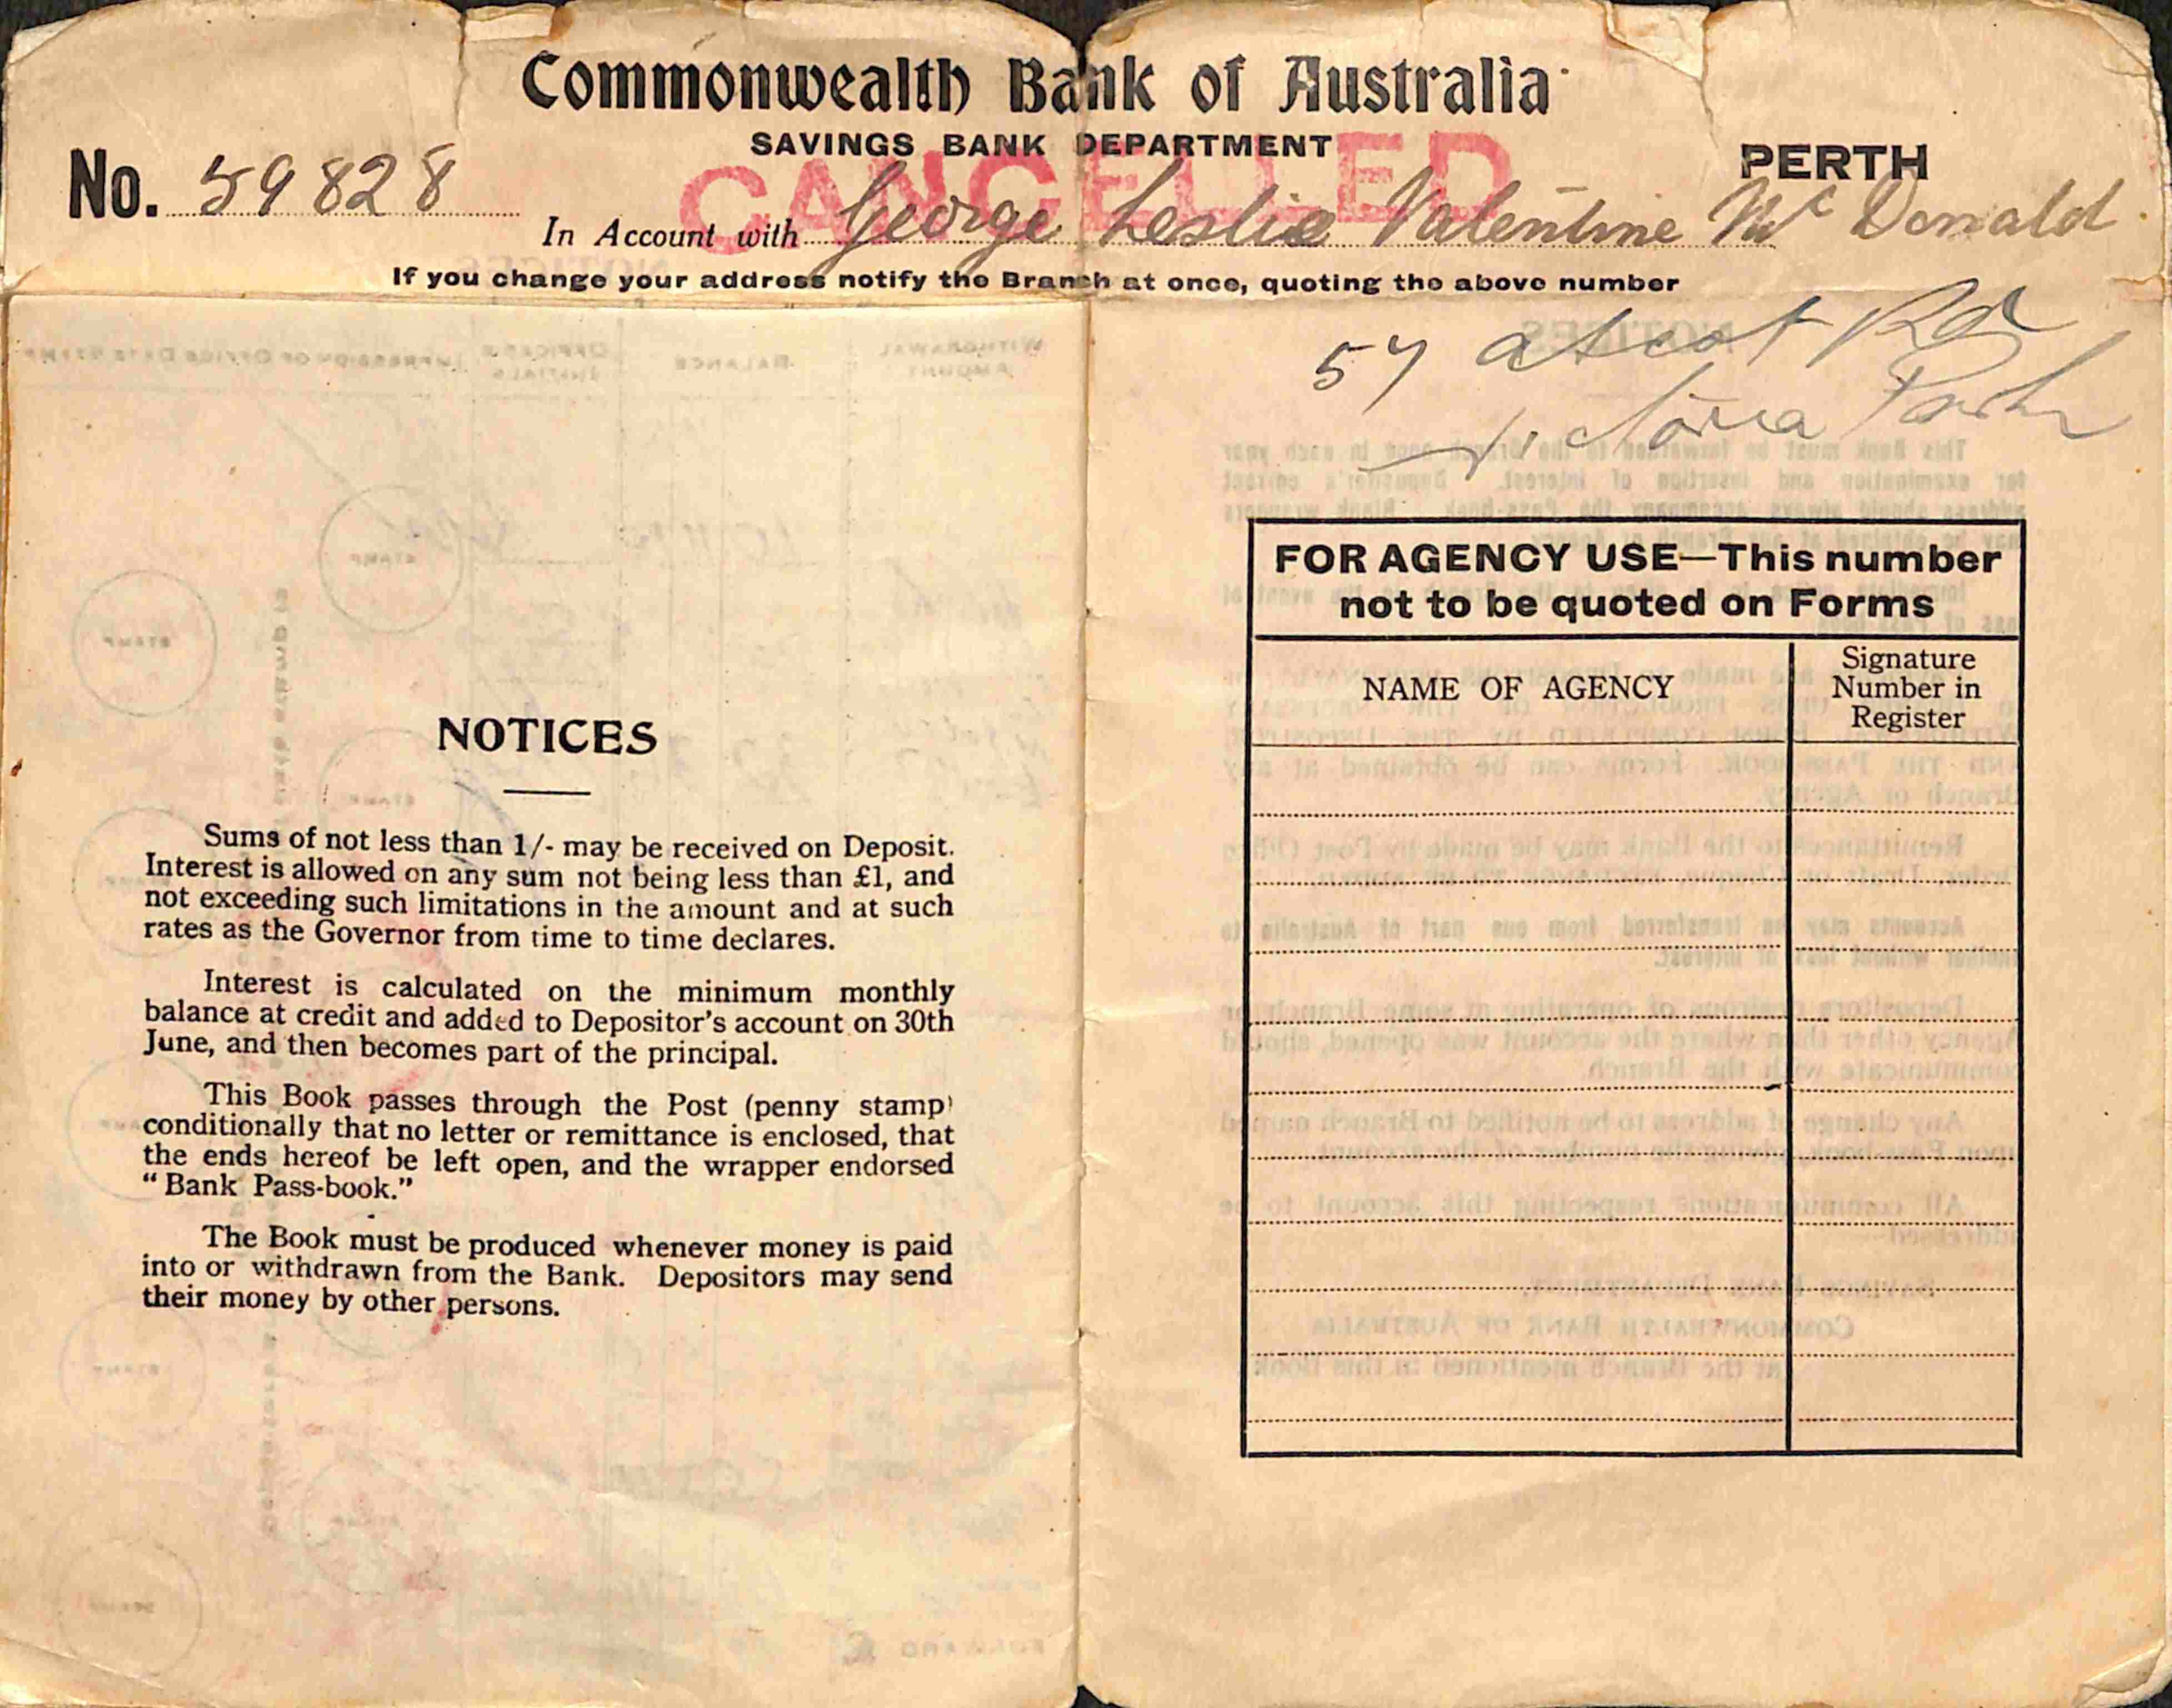 Commonwealth Bank of Australia
SAVINGS BANK DEPARTMENT
PERTH
CANCELLED
No. 59828
In Account with George Leslie Valentine Mc Donald
If you change your address notify the Branch at once, quoting the above number
57 Ascot Rd
Victoria Park
NOTICES
Sums of not less than 1/- may be received on Deposit.
Interest is allowed on any sum not being less than £1, and
not exceeding such limitations in the amount and at such
rates as the Governor from time to time declares.
Interest is calculated on the minimum monthly
balance at credit and added to Depositor's account on 30th
June, and then becomes part of the principal.
This Book passes through the Post (penny stamp)
conditionally that no letter or remittance is enclosed, that
the ends hereof be left open, and the wrapper endorsed
"Bank Pass-book."
The Book must be produced whenever money is paid
into or withdrawn from the Bank. Depositors may send
their money by other persons.
FOR AGENCY USE—This number
not to be quoted on Forms
NAME OF AGENCY
Signature
Number in
Register